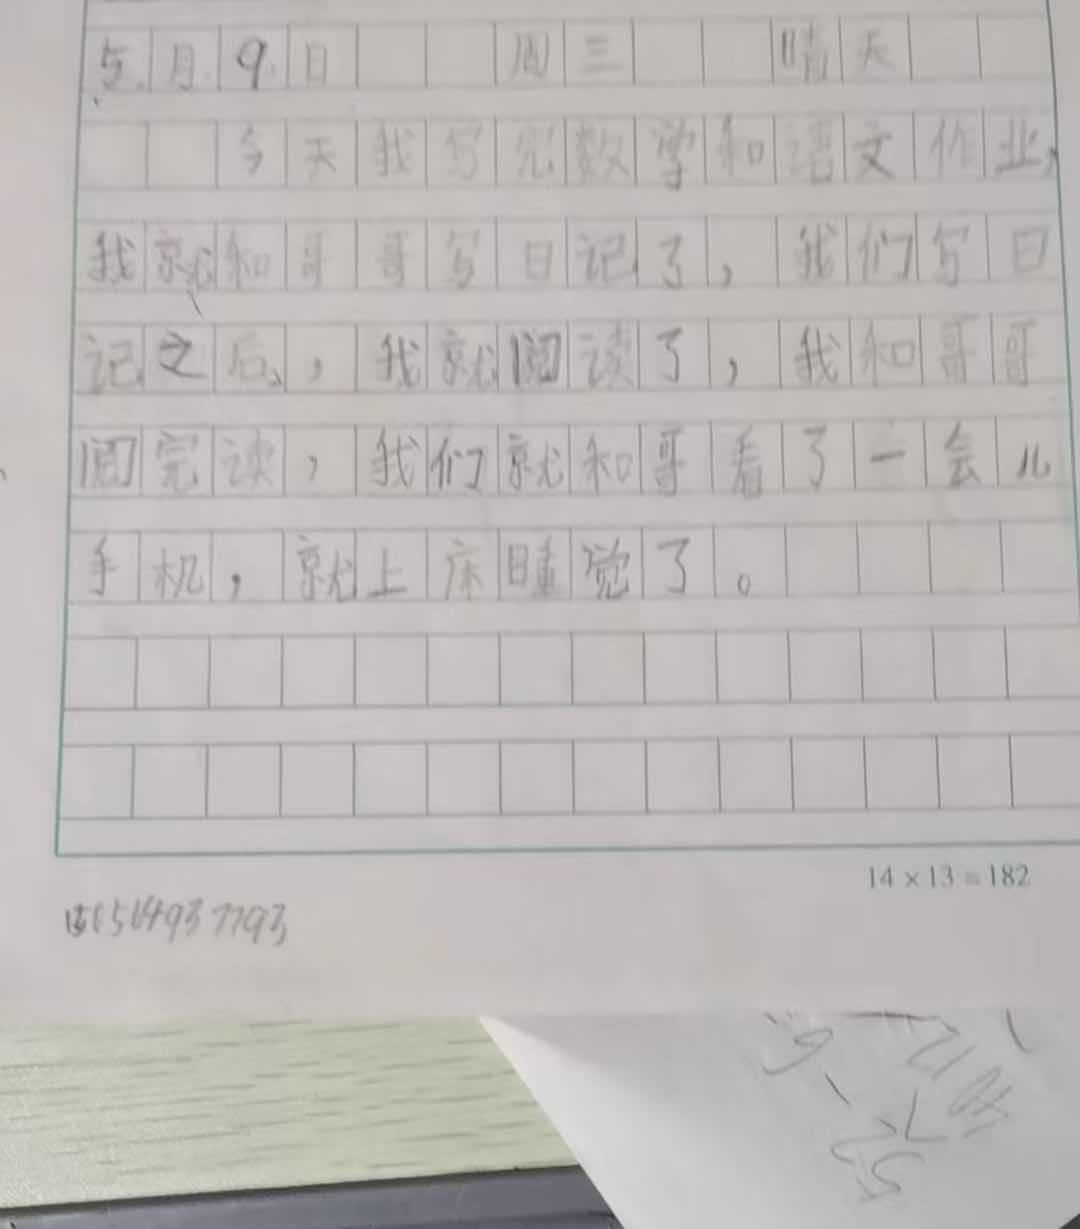 5月9日 周三 晴天
今天我写完数学和语文作业,
我就和哥哥写日记了,我们写日
记之后,我就阅读了,我和哥哥
阅完读,我们就和哥看了一会儿
手机,就上床睡觉了。
14×13=182